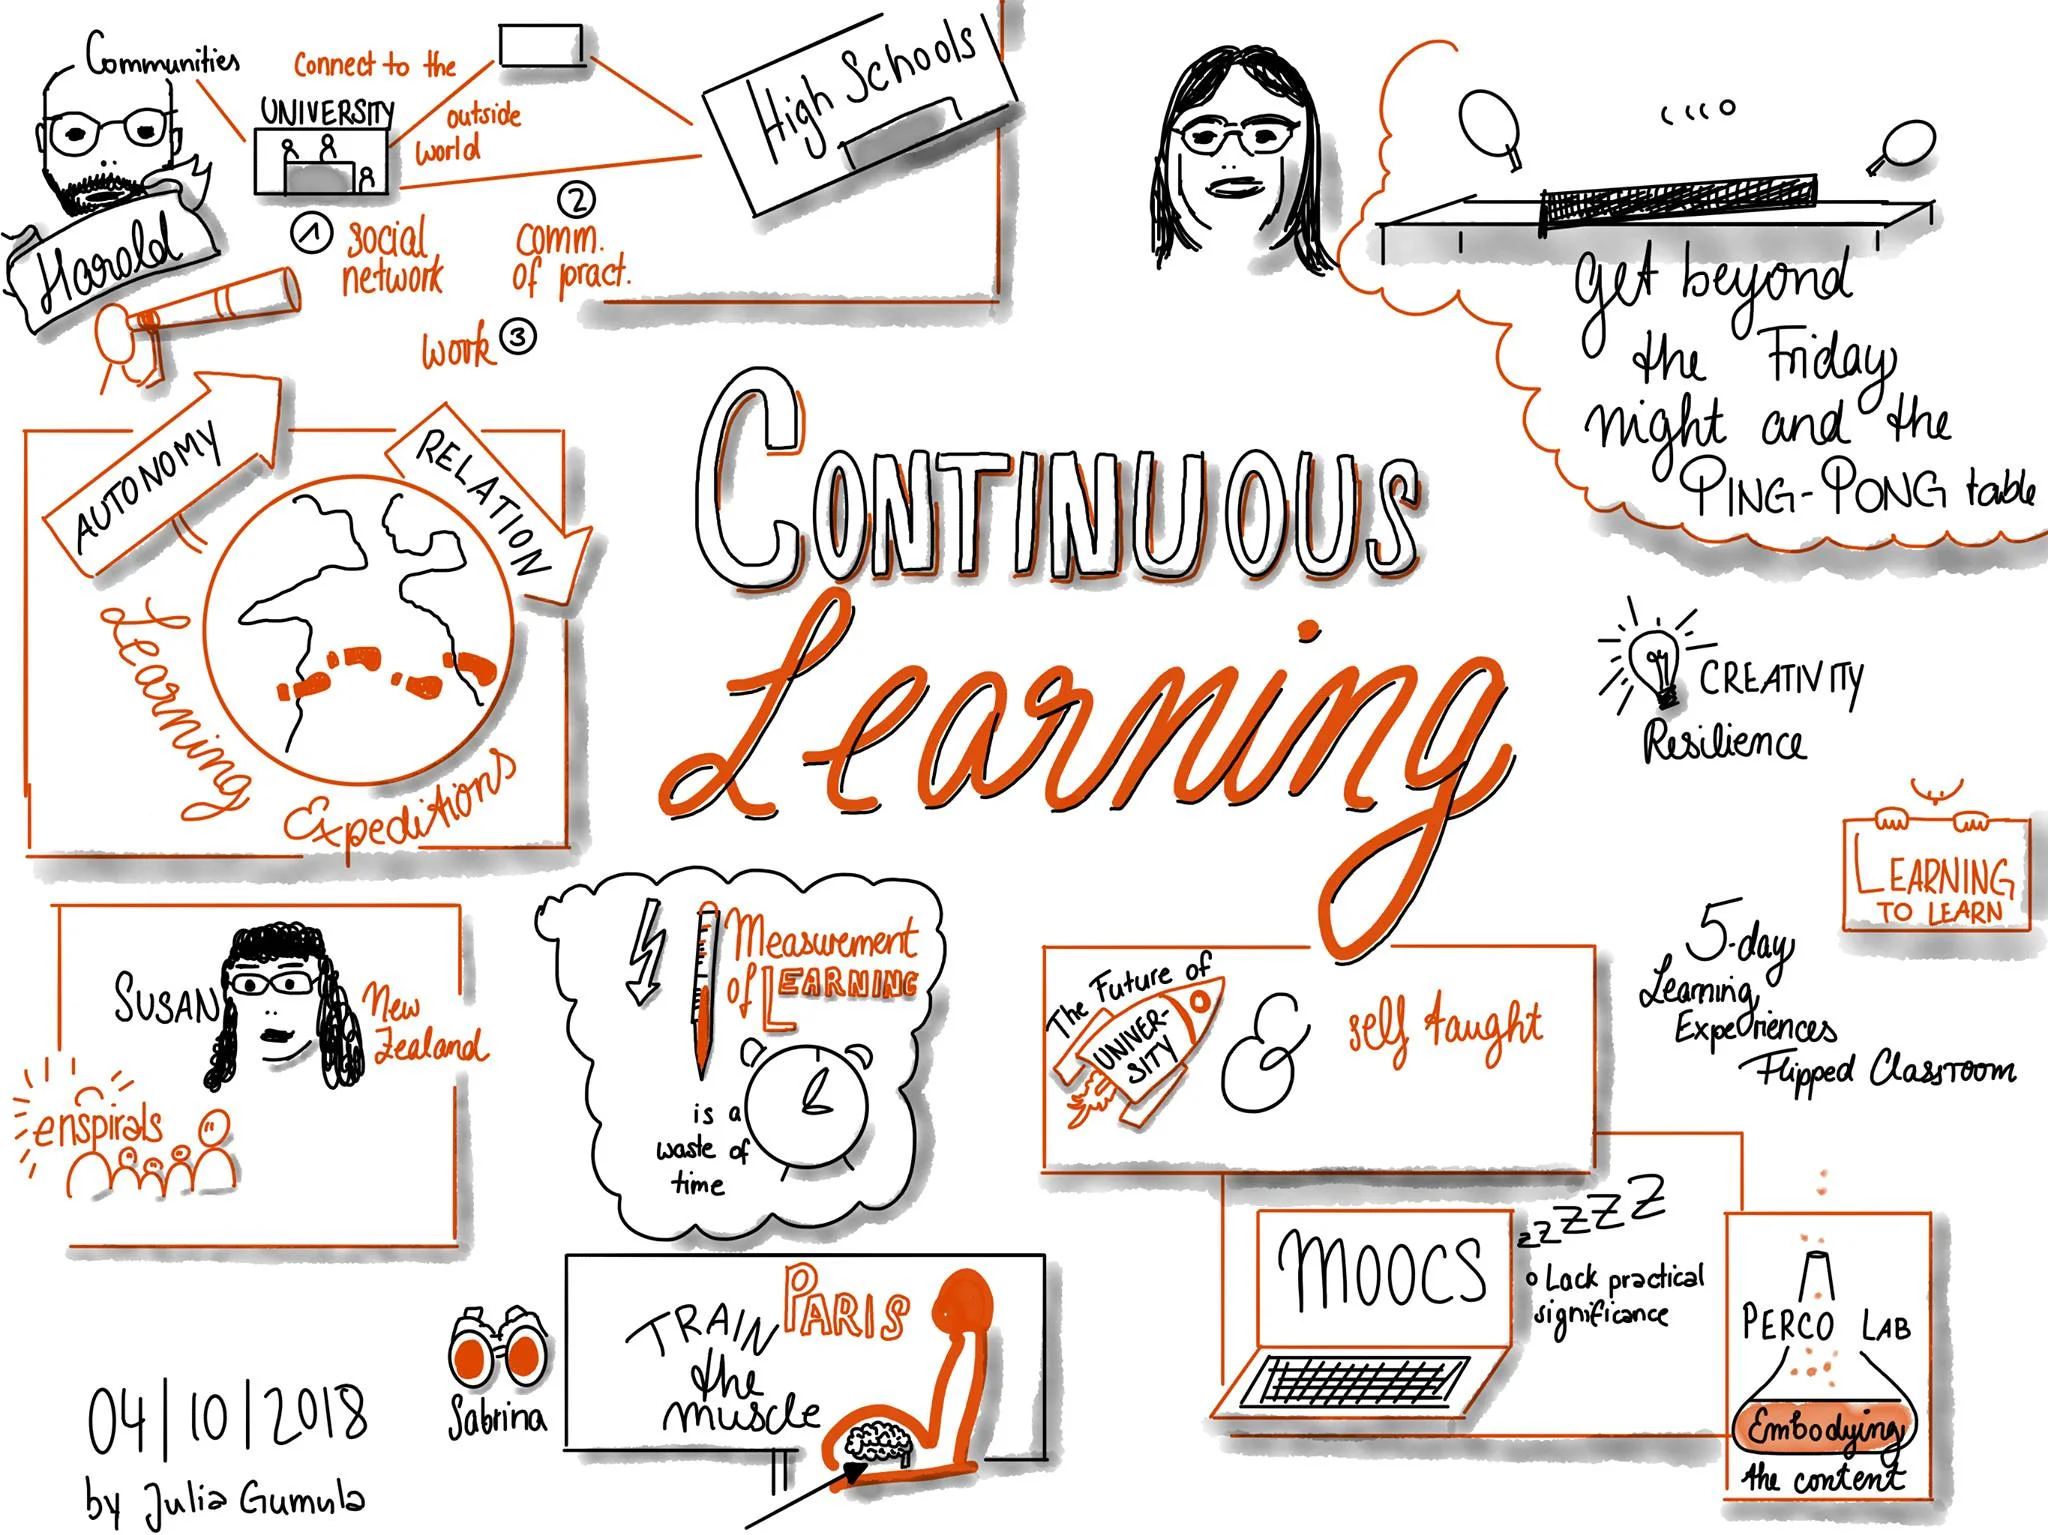 Communities
Connect to the
outside
world
UNIVERSITY
High Schools
Harold
1 social
network
2
comm.
of pract.
work 3
get beyond
the Friday
night and the
PING-PONG table
AUTONOMY
RELATION
Learning
Expeditions
CONTINUOUS
Learning
CREATIVITY
Resilience
LEARNING
TO LEARN
5-day
Learning
Experiences
Flipped Classroom
SUSAN
New
Zealand
enspirals
Measurement
of LEARNING
is a
waste of
time
The Future of
UNIVER-
SITY
& self taught
MOOCS
zzZZZ
Lack practical
significance
PERCO LAB
Embodying
the content
Sabrina
PARIS
TRAIN
the
muscle
04|10|2018
by Julia Gumula